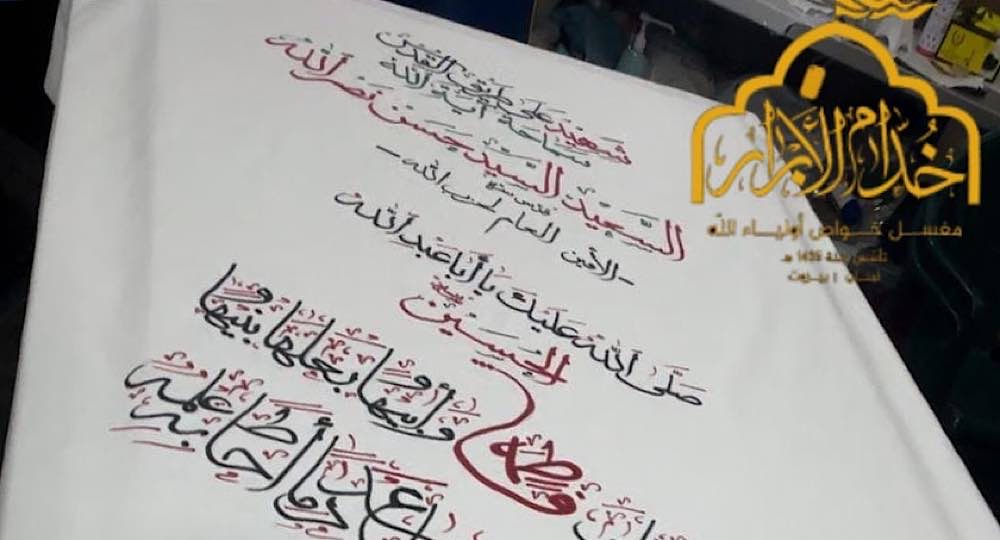 شهيد على طريق القدس
سماحة آية الله
السعيد السيد حسن نصر الله
قدس سره
- الأمين العام لحزب الله -
صلى الله عليك يا أبا عبد الله
الحسين
فاطمة وأبيها وبعلها وبنيها
عدد ما أحاط به علمك
خدام الأبرار
مغسل خواص أولياء الله
تأسس سنة 1435 هـ
لبنان | بيروت